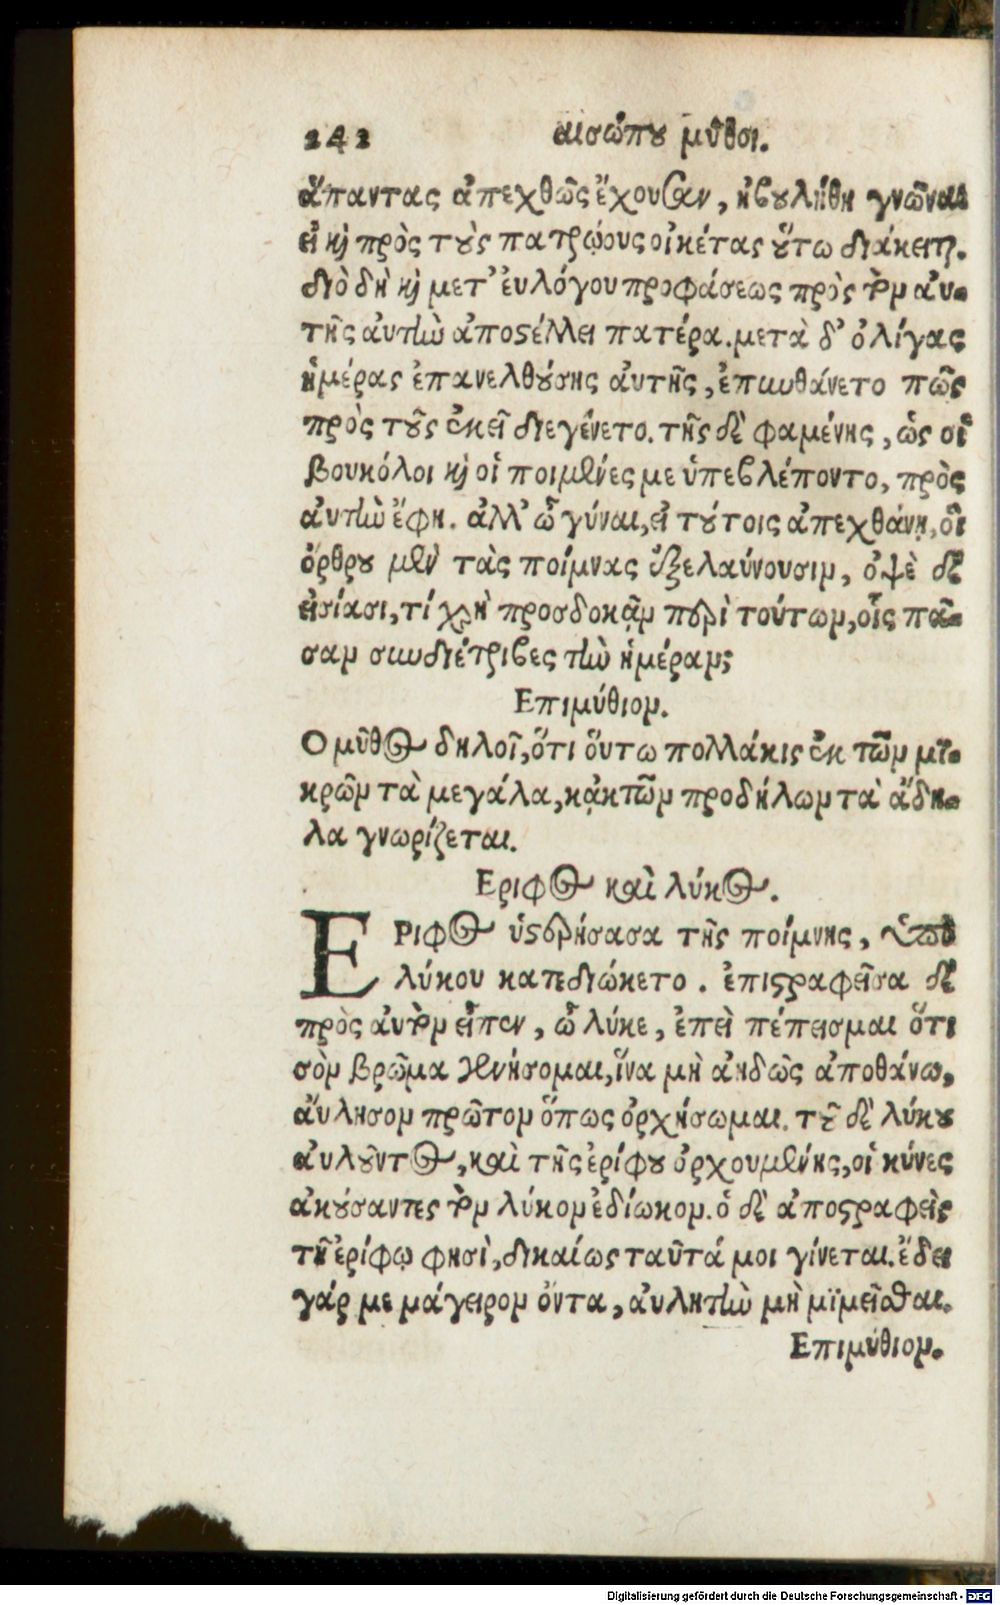 242 αισώπου μῦθοι.
ἅπαντας ἀπεχθῶς ἔχουσαν, ἠβουλήθη γνῶναι
εἰ καὶ πρὸς τοὺς πατρῴους οἰκέτας οὕτω διάκειται.
διὸ δὴ καὶ μετ' ἐυλόγου προφάσεως πρὸς τὸν ἀυ-
τῆς ἀυτὴν ἀποστέλλει πατέρα. μετὰ δ' ὀλίγας
ἡμέρας ἐπανελθούσης ἀυτῆς, ἐπυνθάνετο πῶς
πρὸς τοῦς ἐκεῖ διεγένετο. τῆς δὲ φαμένης, ὡς οἱ
βουκόλοι καὶ οἱ ποιμένες με ὑπεβλέποντο, πρὸς
ἀυτὴν ἔφη. ἀλλ' ὦ γύναι, εἰ τούτοις ἀπεχθάνῃ, οἳ
ὄρθρου μὲν τὰς ποίμνας ἐξελαύνουσιν, ὀψὲ δὲ
εἰσίασι, τί χρὴ προσδοκᾷν περὶ τούτων, οἷς πᾶ-
σαν συνδιέτριβες τὴν ἡμέραν;
Επιμύθιον.
Ο μῦθος δηλοῖ, ὅτι ὅυτω πολλάκις ἐκ τῶν μϊ-
κρῶν τὰ μεγάλα, κᾀκ τῶν προδήλων τὰ ἄδη-
λα γνωρίζεται.
Εριφος καὶ λύκος.
ΕΡιφος ὑστερήσασα τῆς ποίμνης, ὑπὸ
λύκου κατεδιώκετο. ἐπιστραφεῖσα δὲ
πρὸς ἀυτὸν εἶπεν, ὦ λύκε, ἐπεὶ πέπεισμαι ὅτι
σὸν βρῶμα γενήσομαι, ἵνα μὴ ἀηδῶς ἀποθάνω,
ἄυλησον πρῶτον ὅπως ὀρχήσωμαι. τοῦ δὲ λύκου
ἀυλοῦντος, καὶ τῆς ἐρίφου ὀρχουμένης, οἱ κύνες
ἀκούσαντες τὸν λύκον ἐδίωκον. ὁ δὲ ἀποστραφεὶς
τῇ ἐρίφῳ φησὶ, δικαίως ταῦτά μοι γίνεται. ἔδει
γάρ με μάγειρον ὄντα, ἀυλητὴν μὴ μϊμεῖσθαι.
Επιμύθιον.
Digitalisierung gefördert durch die Deutsche Forschungsgemeinschaft - DFG